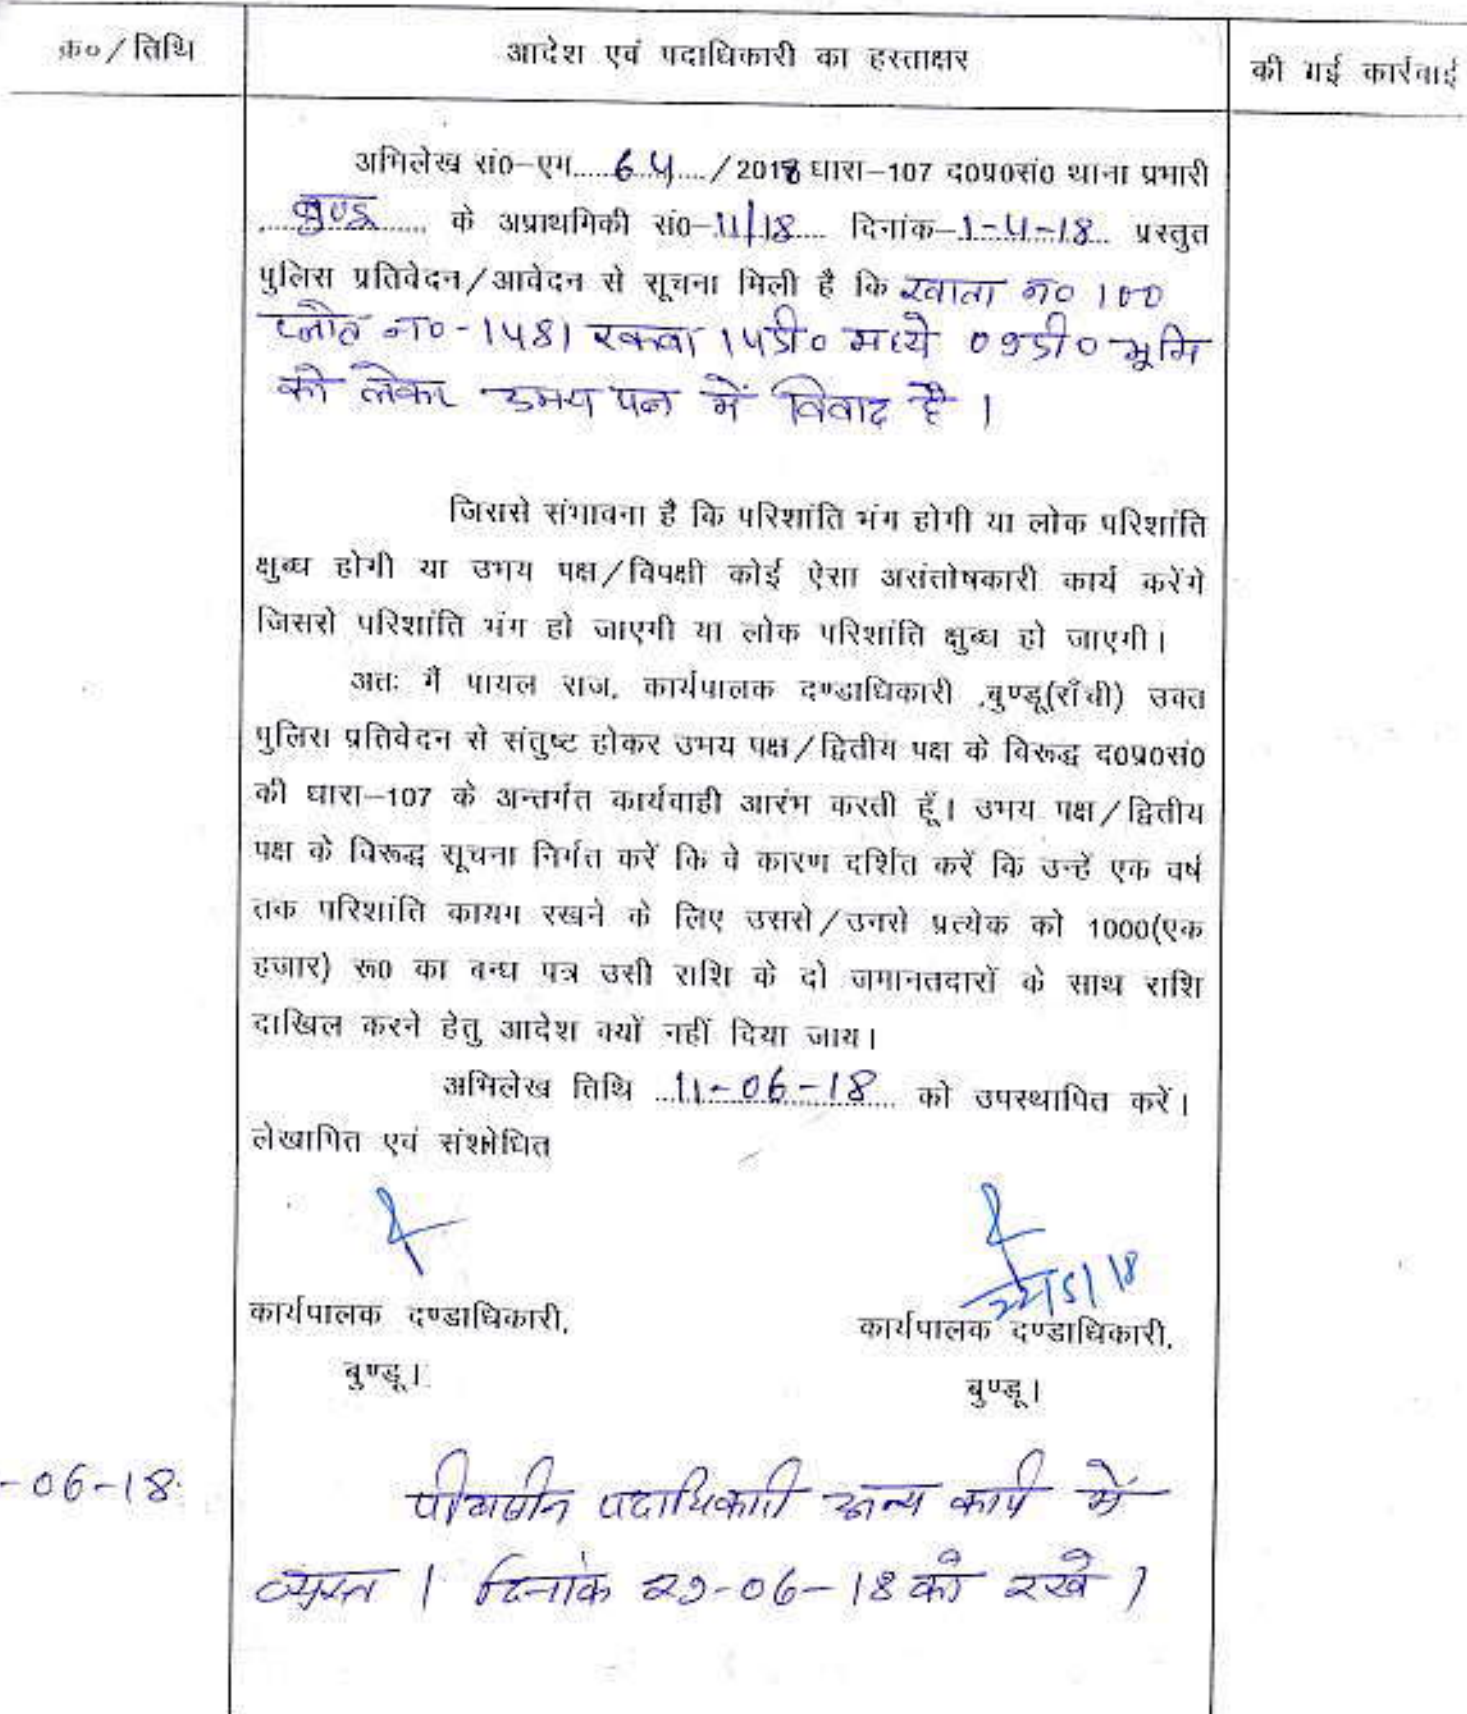 क्र०/तिथि
आदेश एवं पदाधिकारी का हस्ताक्षर
की गई कार्रवाई
अभिलेख सं0–एम.....64..../2018 धारा–107 द0प्र0सं0 थाना प्रभारी
बुण्डू के अप्राथमिकी सं0–11/18 दिनांक–1-4-18 प्रस्तुत
पुलिस प्रतिवेदन/आवेदन से सूचना मिली है कि खाता न० 100
प्लौट न०-1481 रकवा 14डी० मध्ये 09डी० भूमि
को लेकर उभय पक्ष में विवाद है।
जिससे संभावना है कि परिशांति भंग होगी या लोक परिशांति
क्षुब्ध होगी या उभय पक्ष/विपक्षी कोई ऐसा असंतोषकारी कार्य करेंगे
जिससे परिशांति भंग हो जाएगी या लोक परिशांति क्षुब्ध हो जाएगी।
अतः मैं पायल राज, कार्यपालक दण्डाधिकारी ,बुण्डू(राँची) उक्त
पुलिस प्रतिवेदन से संतुष्ट होकर उभय पक्ष/द्वितीय पक्ष के विरूद्ध द0प्र0सं0
की धारा–107 के अन्तर्गत कार्यवाही आरंभ करती हूँ। उभय पक्ष/द्वितीय
पक्ष के विरूद्ध सूचना निर्गत करें कि वे कारण दर्शित करें कि उन्हें एक वर्ष
तक परिशांति कायम रखने के लिए उससे/उनसे प्रत्येक को 1000(एक
हजार) रू0 का बन्ध पत्र उसी राशि के दो जमानतदारों के साथ राशि
दाखिल करने हेतु आदेश क्यों नहीं दिया जाय।
अभिलेख तिथि 11-06-18 को उपस्थापित करें।
लेखापित एवं संशोधित
22/5/18
कार्यपालक दण्डाधिकारी, कार्यपालक दण्डाधिकारी,
बुण्डू। बुण्डू।
-06-18 पीठासीन पदाधिकारी अन्य कार्य में
व्यस्त। दिनांक 29-06-18 को रखें।